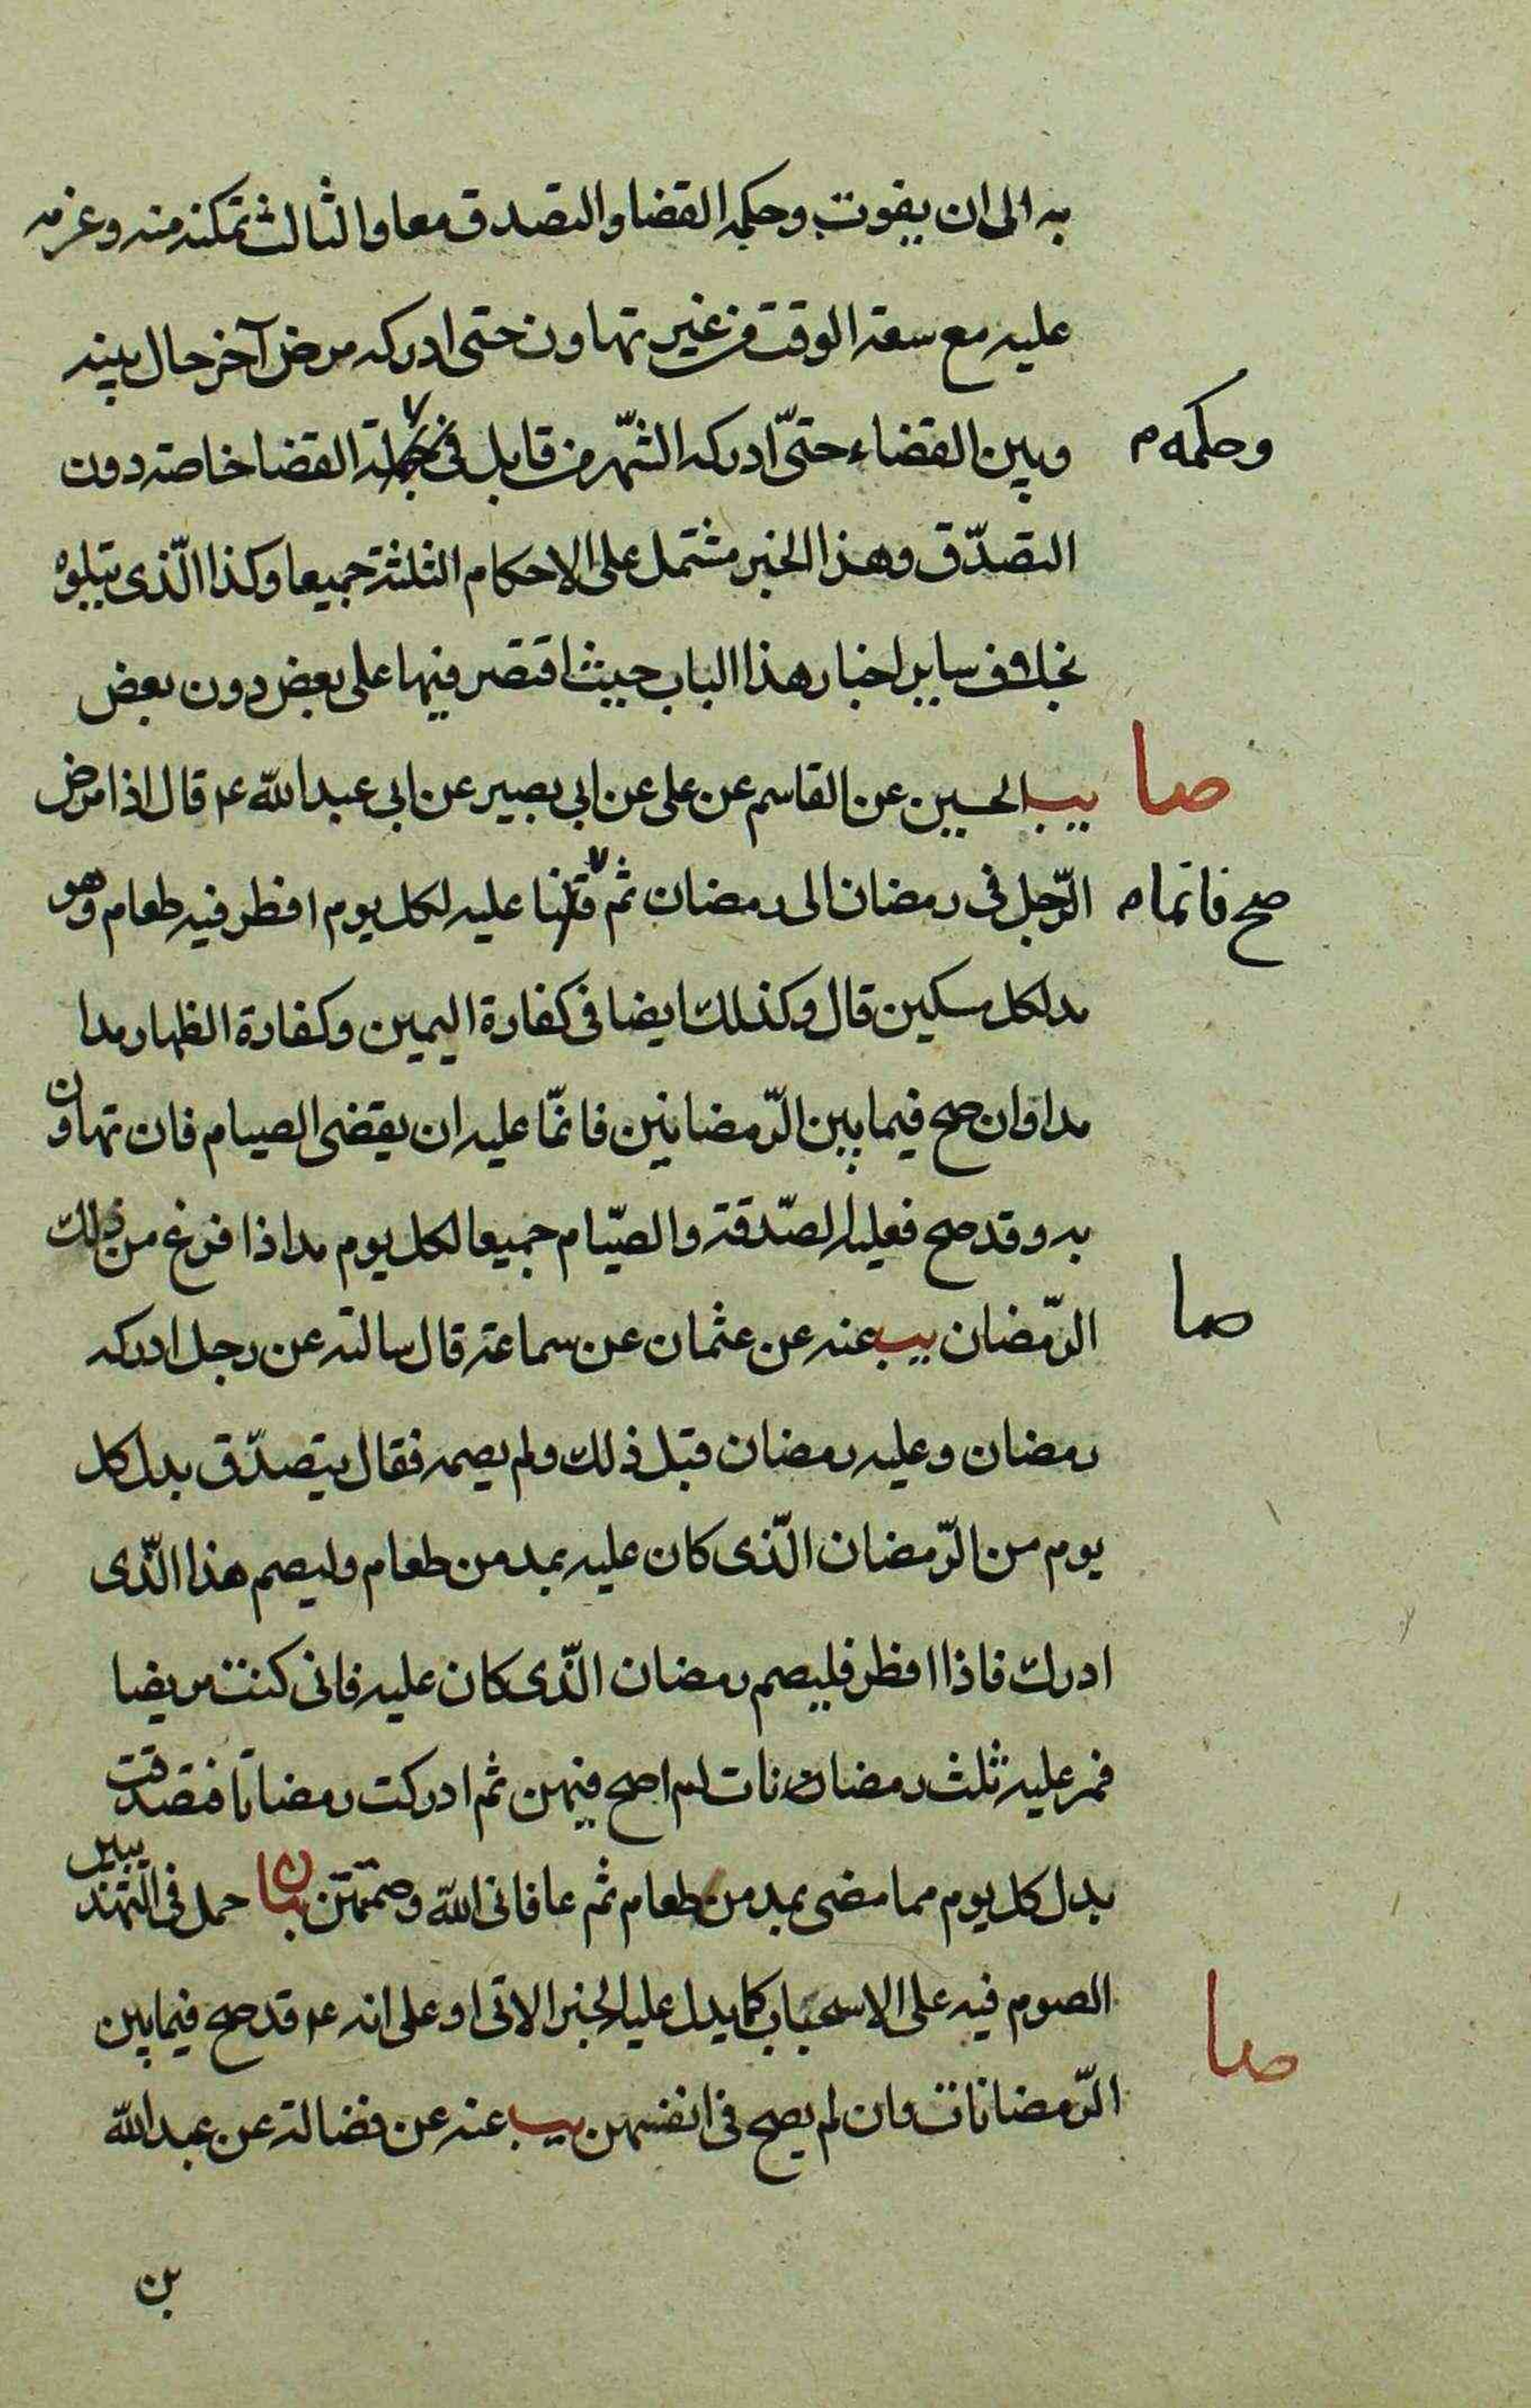 به الى ان يفوت وحكمه القضا والتصدق معا والثالث تمكنه منه وعزمه
عليه مع سعة الوقت من غير تهاون حتى ادركه مرض آخر حال بينه
وبين القضاء حتّى ادركه الشّهر من قابل القضا خاصة دون
وحكمه م
التصدّق وهذا الخبر مشتمل على الاحكام الثلثة جميعا وكذا الّذى يتلوه
بخلاف ساير اخبار هذا الباب حيث اقتصر فيها على بعض دون بعض
صا
يب الحسين عن القاسم عن على عن ابى بصير عن ابى عبد الله ع قال اذا مرض
الرّجل فى رمضان الى رمضان ثم عليه لكل يوم افطر فيه طعام وهو
صح فانما م
مد لكل مسكين قال وكذلك ايضا فى كفارة اليمين وكفارة الظهار مدا
مدا وان صح فيما بين الرّمضانين فانمّا عليه ان يقضى الصيام فان تهاون
به وقد صح فعليه الصّدقة والصّيام جميعا لكل يوم مد اذا فرغ من ذلك
صا
الرّمضان يب عنه عن عثمان عن سماعة قال سالته عن رجل ادركه
رمضان وعليه رمضان قبل ذلك ولم يصمه فقال يتصدّق بدل كل
يوم من الرّمضان الّذى كان عليه بمد من طعام وليصم هذا الّذى
ادرك فاذا افطر فليصم رمضان الّذى كان عليه فانى كنت مريضا
فمر عليه ثلث رمضانات لم اصح فيهن ثم ادركت رمضانا فتصدقت
بدل كل يوم مما مضى بمد من طعام ثم عافانى الله وصمتهن بيان حمل فى التهذيبين
الصوم فيه على الاستحباب كما يدل عليه الخبر الاتى او على انه ع قد صح فيما بين
صا
الرّمضانات وان لم يصح فى انفسهن يب عنه عن فضالة عن عبد الله
بن